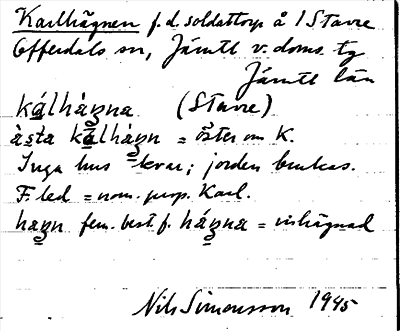 Karlhägnen f.d. soldattorp å 1 Stavre
Offerdals sn, Jämtl v. doms. tg
Jämtl län
kálhàgna (Stavre)
àsta kálhàgn = öster om K.
Inga hus kvar; jorden brukas.
F. led = nom. prop. Karl.
hagn fem. best. f. hágna = vishägnad
Nils Simonsson 1945